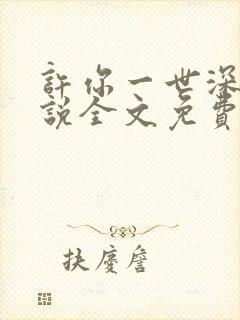 許你一世深
說全文免費
扶慶詹